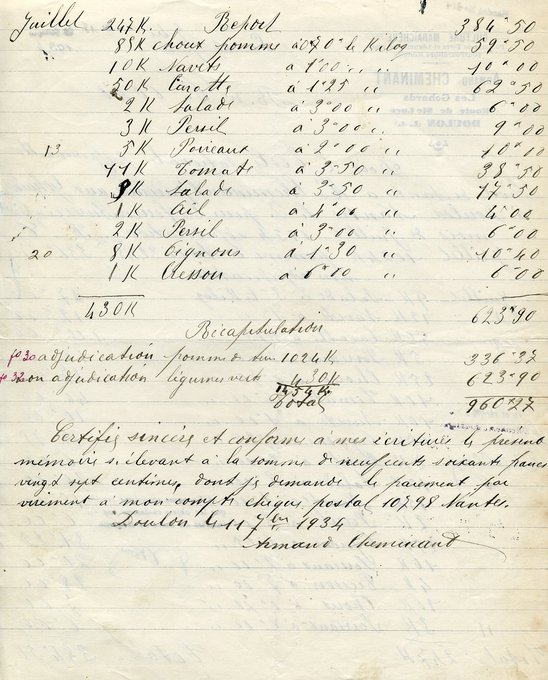 Juillet 247K. Report 384"50
85K choux pomme à 0"70 le Kilog 59"50
10K Navets à 1"00 " 10"00
50K Carotte à 1"25 " 62"50
2K Salade à 3"00 " 6"00
3K Persil à 3"00 " 9"00
13 5K Poireaux à 2"00 " 10"00
11K Tomate à 3"50 " 38"50
5K Salade à 3"50 " 17"50
1K Ail à 4"00 " 4"00
2K Persil à 3"00 " 6"00
20 8K Oignons à 1"30 " 10"40
1K Cresson à 6"00 " 6"00
430K 623"90
Récapitulation
fo 30 adjudication pomme de terre 1024K 336"37
fo 32 non adjudication légumes verts 430K 623"90
1454K
Total 960"27
Certifié sincère et conforme à mes écritures le présent
mémoire s'élevant à la somme de neuf cents soixante francs
vingt sept centimes, dont je demande le paiement par
virement à mon compte chèque postal 10798 Nantes.
Doulon le 11 7bre 1934
Armand Cheminant